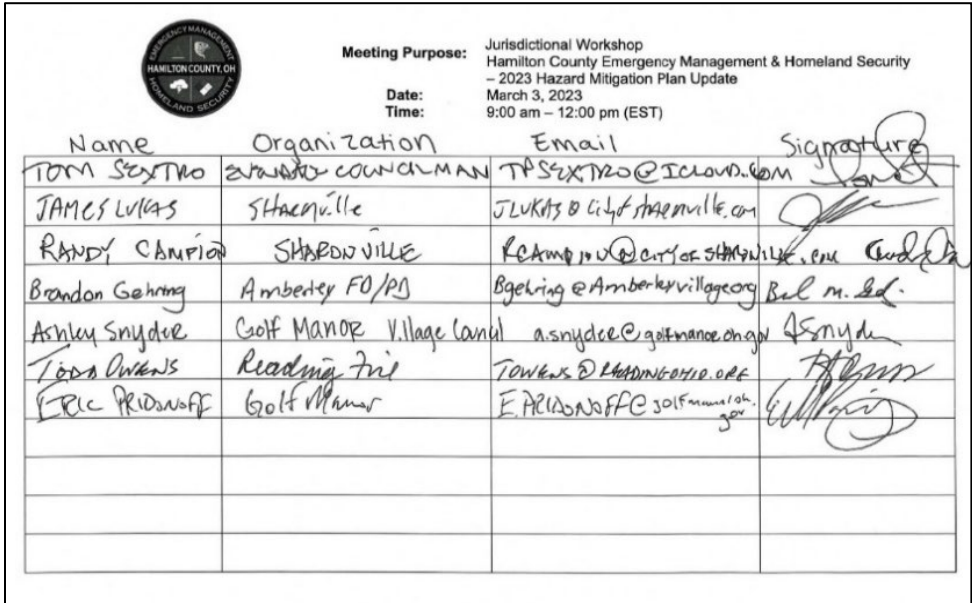 EMERGENCY MANAGEMENT
HAMILTON COUNTY, OH
HOMELAND SECURITY
Meeting Purpose: Jurisdictional Workshop
Hamilton County Emergency Management & Homeland Security
– 2023 Hazard Mitigation Plan Update
Date: March 3, 2023
Time: 9:00 am – 12:00 pm (EST)
Name Organization Email Signature
TOM SEXTRO COUNCILMAN TPSEXTRO@ICLOUD.COM
JAMES LUKAS SHARONVILLE
RANDY CAMPION SHARONVILLE RCAMPION@CITYOFSHARONVILLE.COM
Brandon Gehring Amberley FD/PD Bgehring@Amberleyvillage.org
Ashley Snyder Golf Manor Village a.snyder@golfmanoroh.gov ASnyder
TODD OWENS Reading Fire TOWENS@READINGOHIO.ORG
ERIC PRIDONOFF Golf Manor